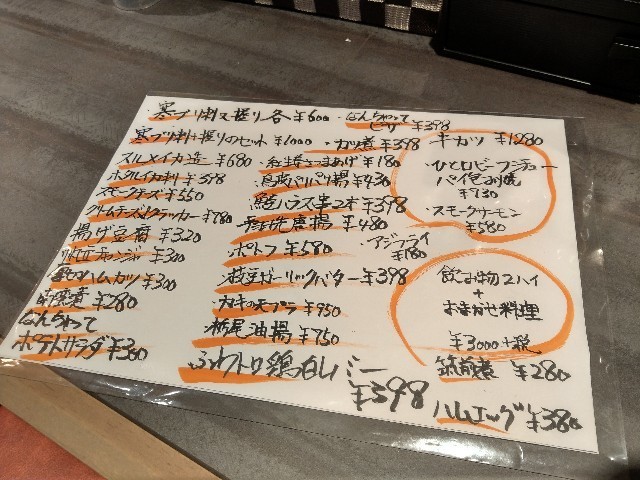 寒ブリ刺又握り各¥600
寒ブリ刺+握りのセット ¥1000
スルメイカ造 ¥680
ホタルイカ刺 ¥398
スモークチーズ ¥550
クリームチーズクラッカー ¥780
揚げ豆腐 ¥320
チャンジャ ¥300
ハムカツ ¥300
¥280
なんちゃって
ポテトサラダ ¥380
なんちゃって
ピザ ¥398
カツ煮 ¥398
さつまあげ ¥180
鳥皮パリパリ揚 ¥430
ハラス串2本 ¥398
唐揚 ¥480
ポトフ ¥580
アジフライ
¥180
枝豆ガーリックバター ¥398
カキの天プラ ¥950
栃尾油揚 ¥750
ふわトロ鶏白レバー
¥398
牛カツ ¥1280
・ひと口ビーフシチュー
パイ包み焼
¥730
・スモークサーモン
¥580
飲み物2ハイ
+
おまかせ料理
¥3000+税
筑前煮 ¥280
ハムエッグ ¥380